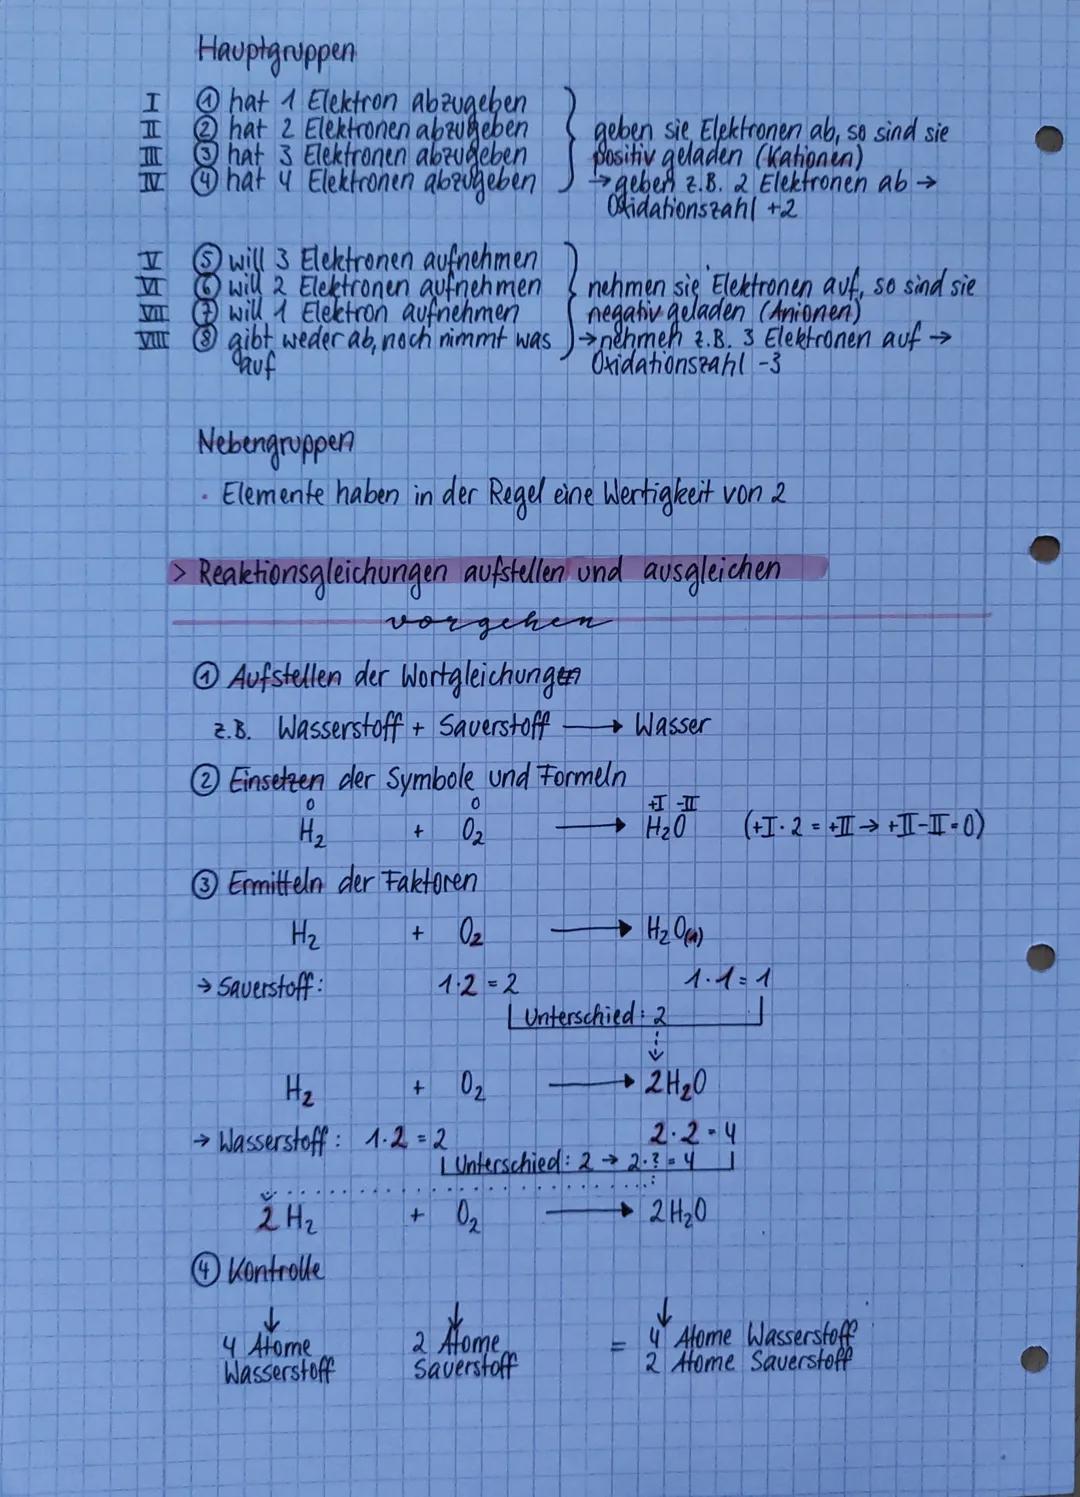 Hauptgruppen
I ① hat 1 Elektron abzugeben
II ② hat 2 Elektronen abzugeben
III ③ hat 3 Elektronen abzugeben
IV ④ hat 4 Elektronen abzugeben
geben sie Elektronen ab, so sind sie
positiv geladen (Kationen)
→ geben z.B. 2 Elektronen ab →
Oxidationszahl +2
V ⑤ will 3 Elektronen aufnehmen
VI ⑥ will 2 Elektronen aufnehmen
VII ⑦ will 1 Elektron aufnehmen
VIII ⑧ gibt weder ab, noch nimmt was
auf
nehmen sie Elektronen auf, so sind sie
negativ geladen (Anionen)
→ nehmen z.B. 3 Elektronen auf →
Oxidationszahl -3
Nebengruppen
· Elemente haben in der Regel eine Wertigkeit von 2
> Reaktionsgleichungen aufstellen und ausgleichen
vorgehen
① Aufstellen der Wortgleichung
z.B. Wasserstoff + Sauerstoff → Wasser
② Einsetzen der Symbole und Formeln
0 0 +I -II
H₂ + O₂ → H₂O (+I · 2 = +II → +II-II=0)
③ Ermitteln der Faktoren
H₂ + O₂ → H₂O(1)
→ Sauerstoff: 1·2 = 2 1·1 = 1
Unterschied: 2
H₂ + O₂ → 2H₂O
→ Wasserstoff: 1·2 = 2 2·2 = 4
Unterschied: 2 → 2·? = 4
2 H₂ + O₂ → 2H₂O
④ Kontrolle
↓ ↓ ↓
4 Atome 2 Atome = 4 Atome Wasserstoff
Wasserstoff Sauerstoff 2 Atome Sauerstoff